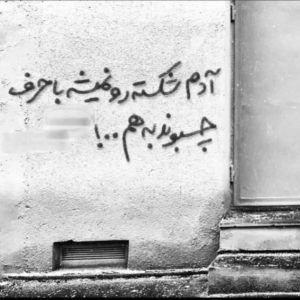 آدم شکسته رو نمیشه با حرف
چسبوند به هم ..!